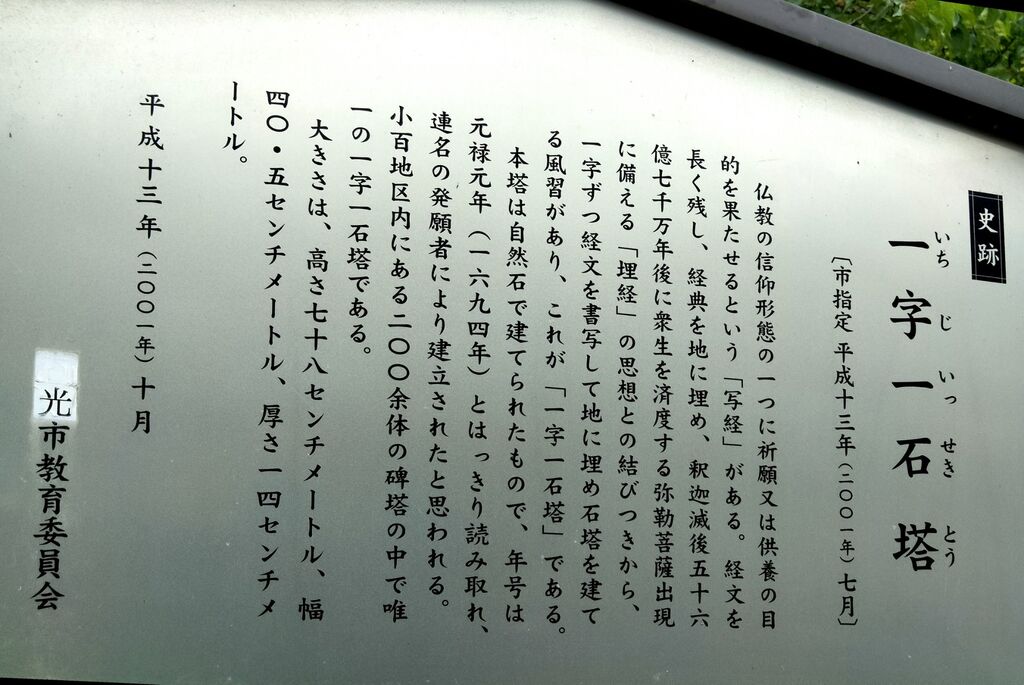 史跡
いち じ いっ せき とう
一字一石塔
〔市指定 平成十三年(二〇〇一年)七月〕
仏教の信仰形態の一つに祈願又は供養の目
的を果たせるという「写経」がある。経文を
長く残し、経典を地に埋め、釈迦滅後五十六
億七千万年後に衆生を済度する弥勒菩薩出現
に備える「埋経」の思想との結びつきから、
一字ずつ経文を書写して地に埋め石塔を建て
る風習があり、これが「一字一石塔」である。
本塔は自然石で建てられたもので、年号は
元禄元年(一六九四年)とはっきり読み取れ、
連名の発願者により建立されたと思われる。
小百地区内にある二〇〇余体の碑塔の中で唯
一の一字一石塔である。
大きさは、高さ七十八センチメートル、幅
四〇・五センチメートル、厚さ一四センチメ
ートル。
平成十三年(二〇〇一年)十月
光市教育委員会